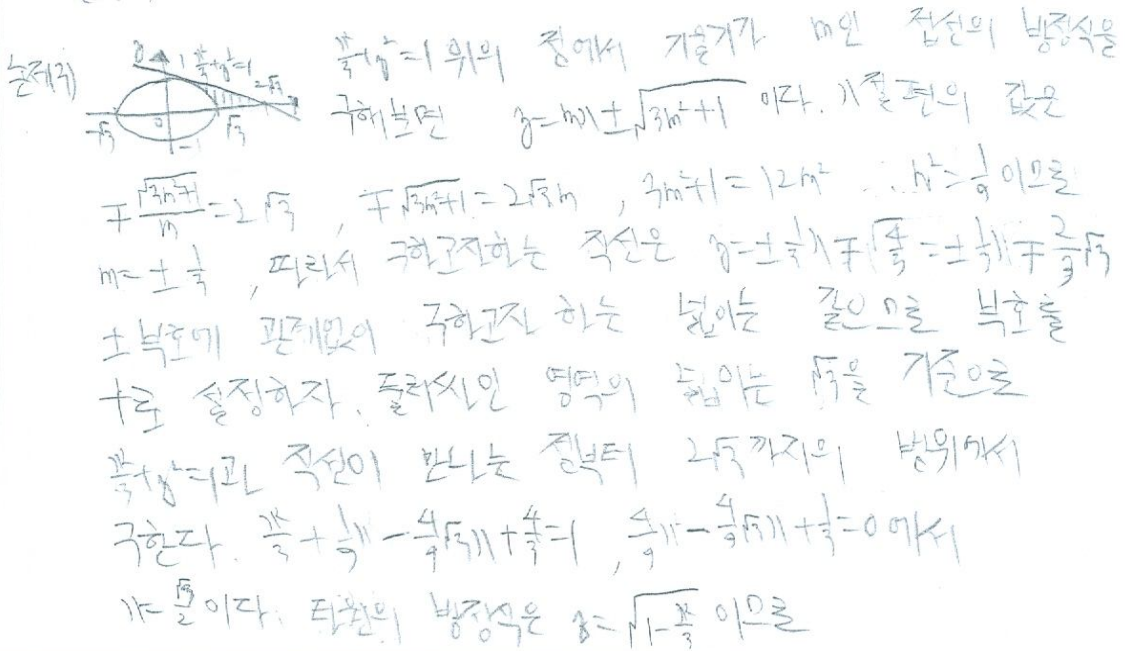 논제2) x²/3+y²=1 위의 점에서 기울기가 m인 접선의 방정식을
구해보면 y=mx±√(3m²+1) 이다. x절편의 값은
∓√(3m²+1)/m=2√3, ∓√(3m²+1)=2√3m, 3m²+1=12m² ∴ m²=1/9 이므로
m=±1/3, 따라서 구하고자하는 직선은 y=±1/3x∓√(4/3)=±1/3x∓2/3√3
±부호에 관계없이 구하고자 하는 넓이는 같으므로 부호를
+로 설정하자. 둘러싸인 영역의 넓이는 √3을 기준으로
x²/3+y²=1과 직선이 만나는 점부터 2√3까지의 범위에서
구한다. x²/3+1/9x²-4/9√3x+4/3=1, 4/9x²-4/9√3x+1/3=0에서
x=√3/2이다. 타원의 방정식은 y=√(1-x²/3) 이므로